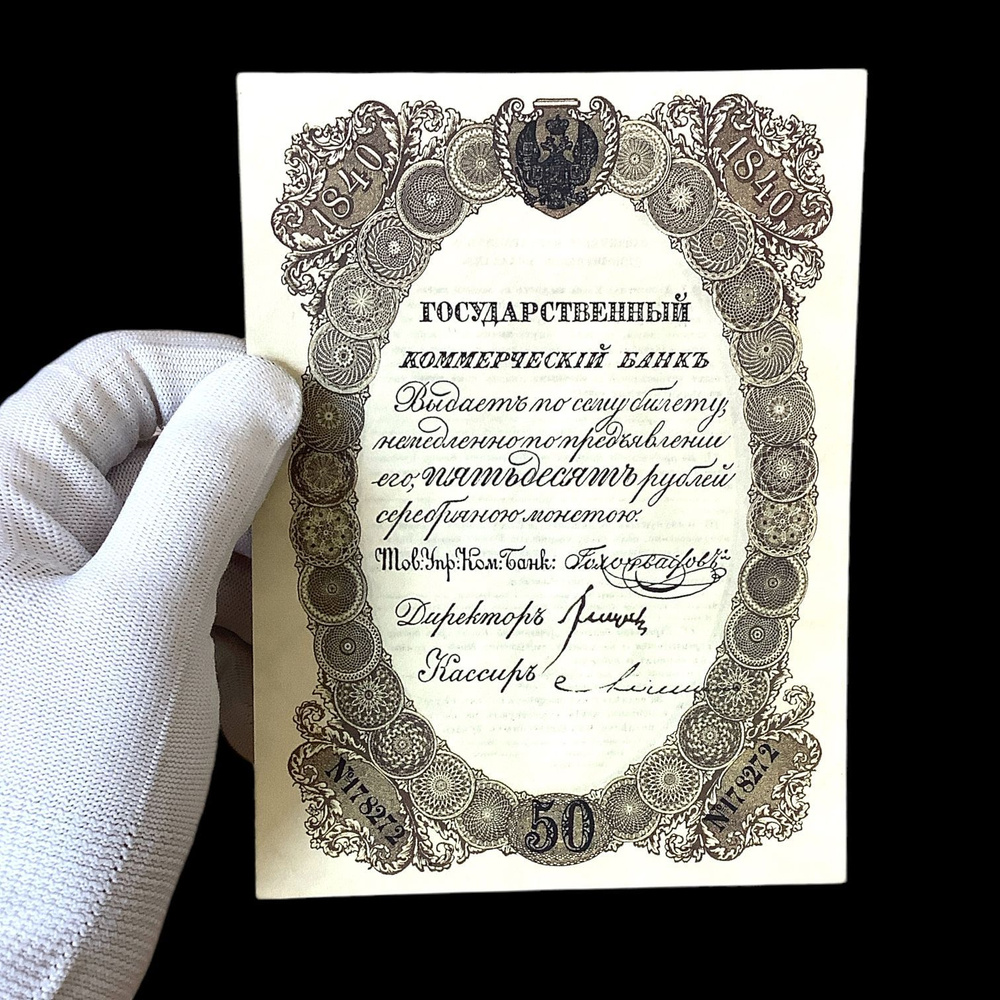 1840 1840
ГОСУДАРСТВЕННЫЙ
КОММЕРЧЕСКІЙ БАНКЪ
Выдаетъ по сему билету,
немедленно по предъявленіи
его, пятьдесятъ рублей
серебряною монетою.
Тов: Упр: Ком: Банк:
Директоръ
Кассиръ
№178272 №178272
50